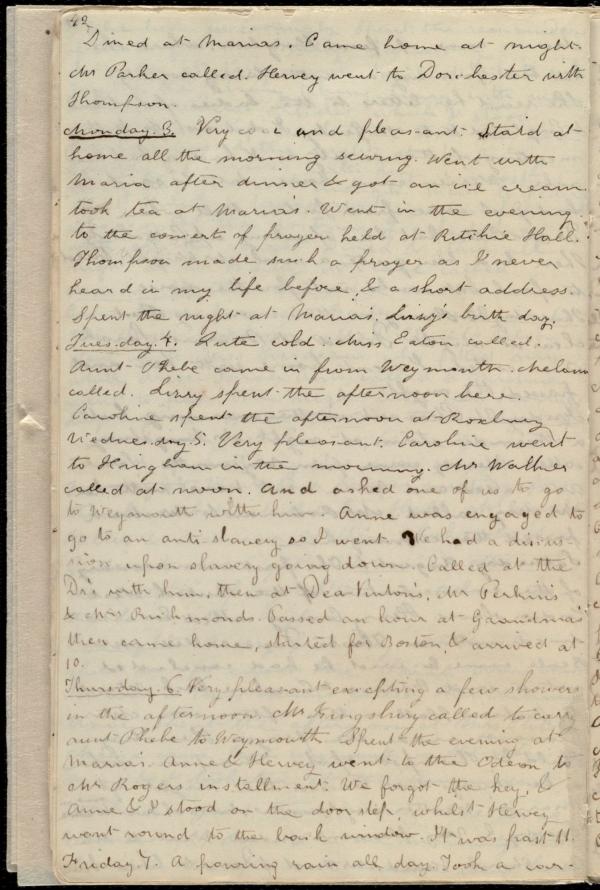 42
Dined at Marias. Came home at night.
Mr Parker called. Hervey went to Dorchester with
Thompson.
Monday. 3. Very cool and pleasant. Staid at
home all the morning sewing. Went with
Maria after dinner & got an ice cream.
took tea at Maria's. Went in the evening
to the concert of prayer held at Ritchie Hall.
Thompson made such a prayer as I never
heard in my life before, & a short address.
Spent the night at Marias. Lizzy's birth day.
Tues.day. 4. Quite cold. Miss Eaton called.
Aunt Phebe came in from Weymouth.
called. Lizzy spent the afternoon here.
Caroline spent the afternoon at Roxbury
Wednes.day. 5. Very pleasant. Caroline went
to Hingham in the morning. Mr Walker
called at noon. And asked one of us to go
to Weymouth with him. Anne was engaged to
go to an anti slavery so I went. We had a discus-
sion upon slavery going down. Called at the
Dr's with him, then at Dea Vinton's, Mr Perkins
& Mrs Richmonds. Passed an hour at Grandmas
then came home, started for Boston, & arrived at
10.
Thursday. 6. Very pleasant excepting a few showers
in the afternoon. Mr Kingsbury called to carry
aunt Phebe to Weymouth. Spent the evening at
Maria's. Anne & Hervey went to the Odeon to
Mr Rogers installment. We forgot the key, &
Anne & I stood on the door step, whilst Hervey
went round to the back window. It was past 11.
Friday 7. A pouring rain all day. Took a